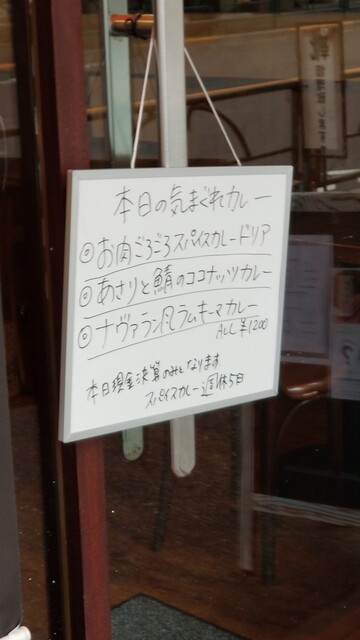 本日の気まぐれカレー
◎お肉ごろごろスパイスカレードリア
◎あさりと鯖のココナッツカレー
◎ナヴァラン風ラムキーマカレー
ALL ¥1200
本日現金決算のみとなります
スパイスカレー週休5日